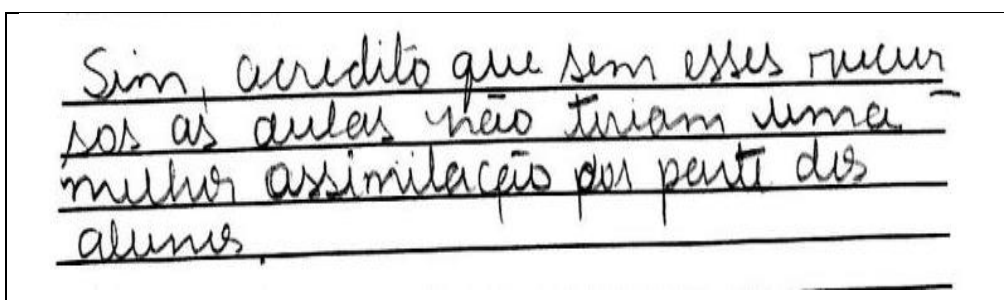 Sim, acredito que sem esses recur
sos as aulas não teriam uma
melhor assimilação por parte dos
alunos.